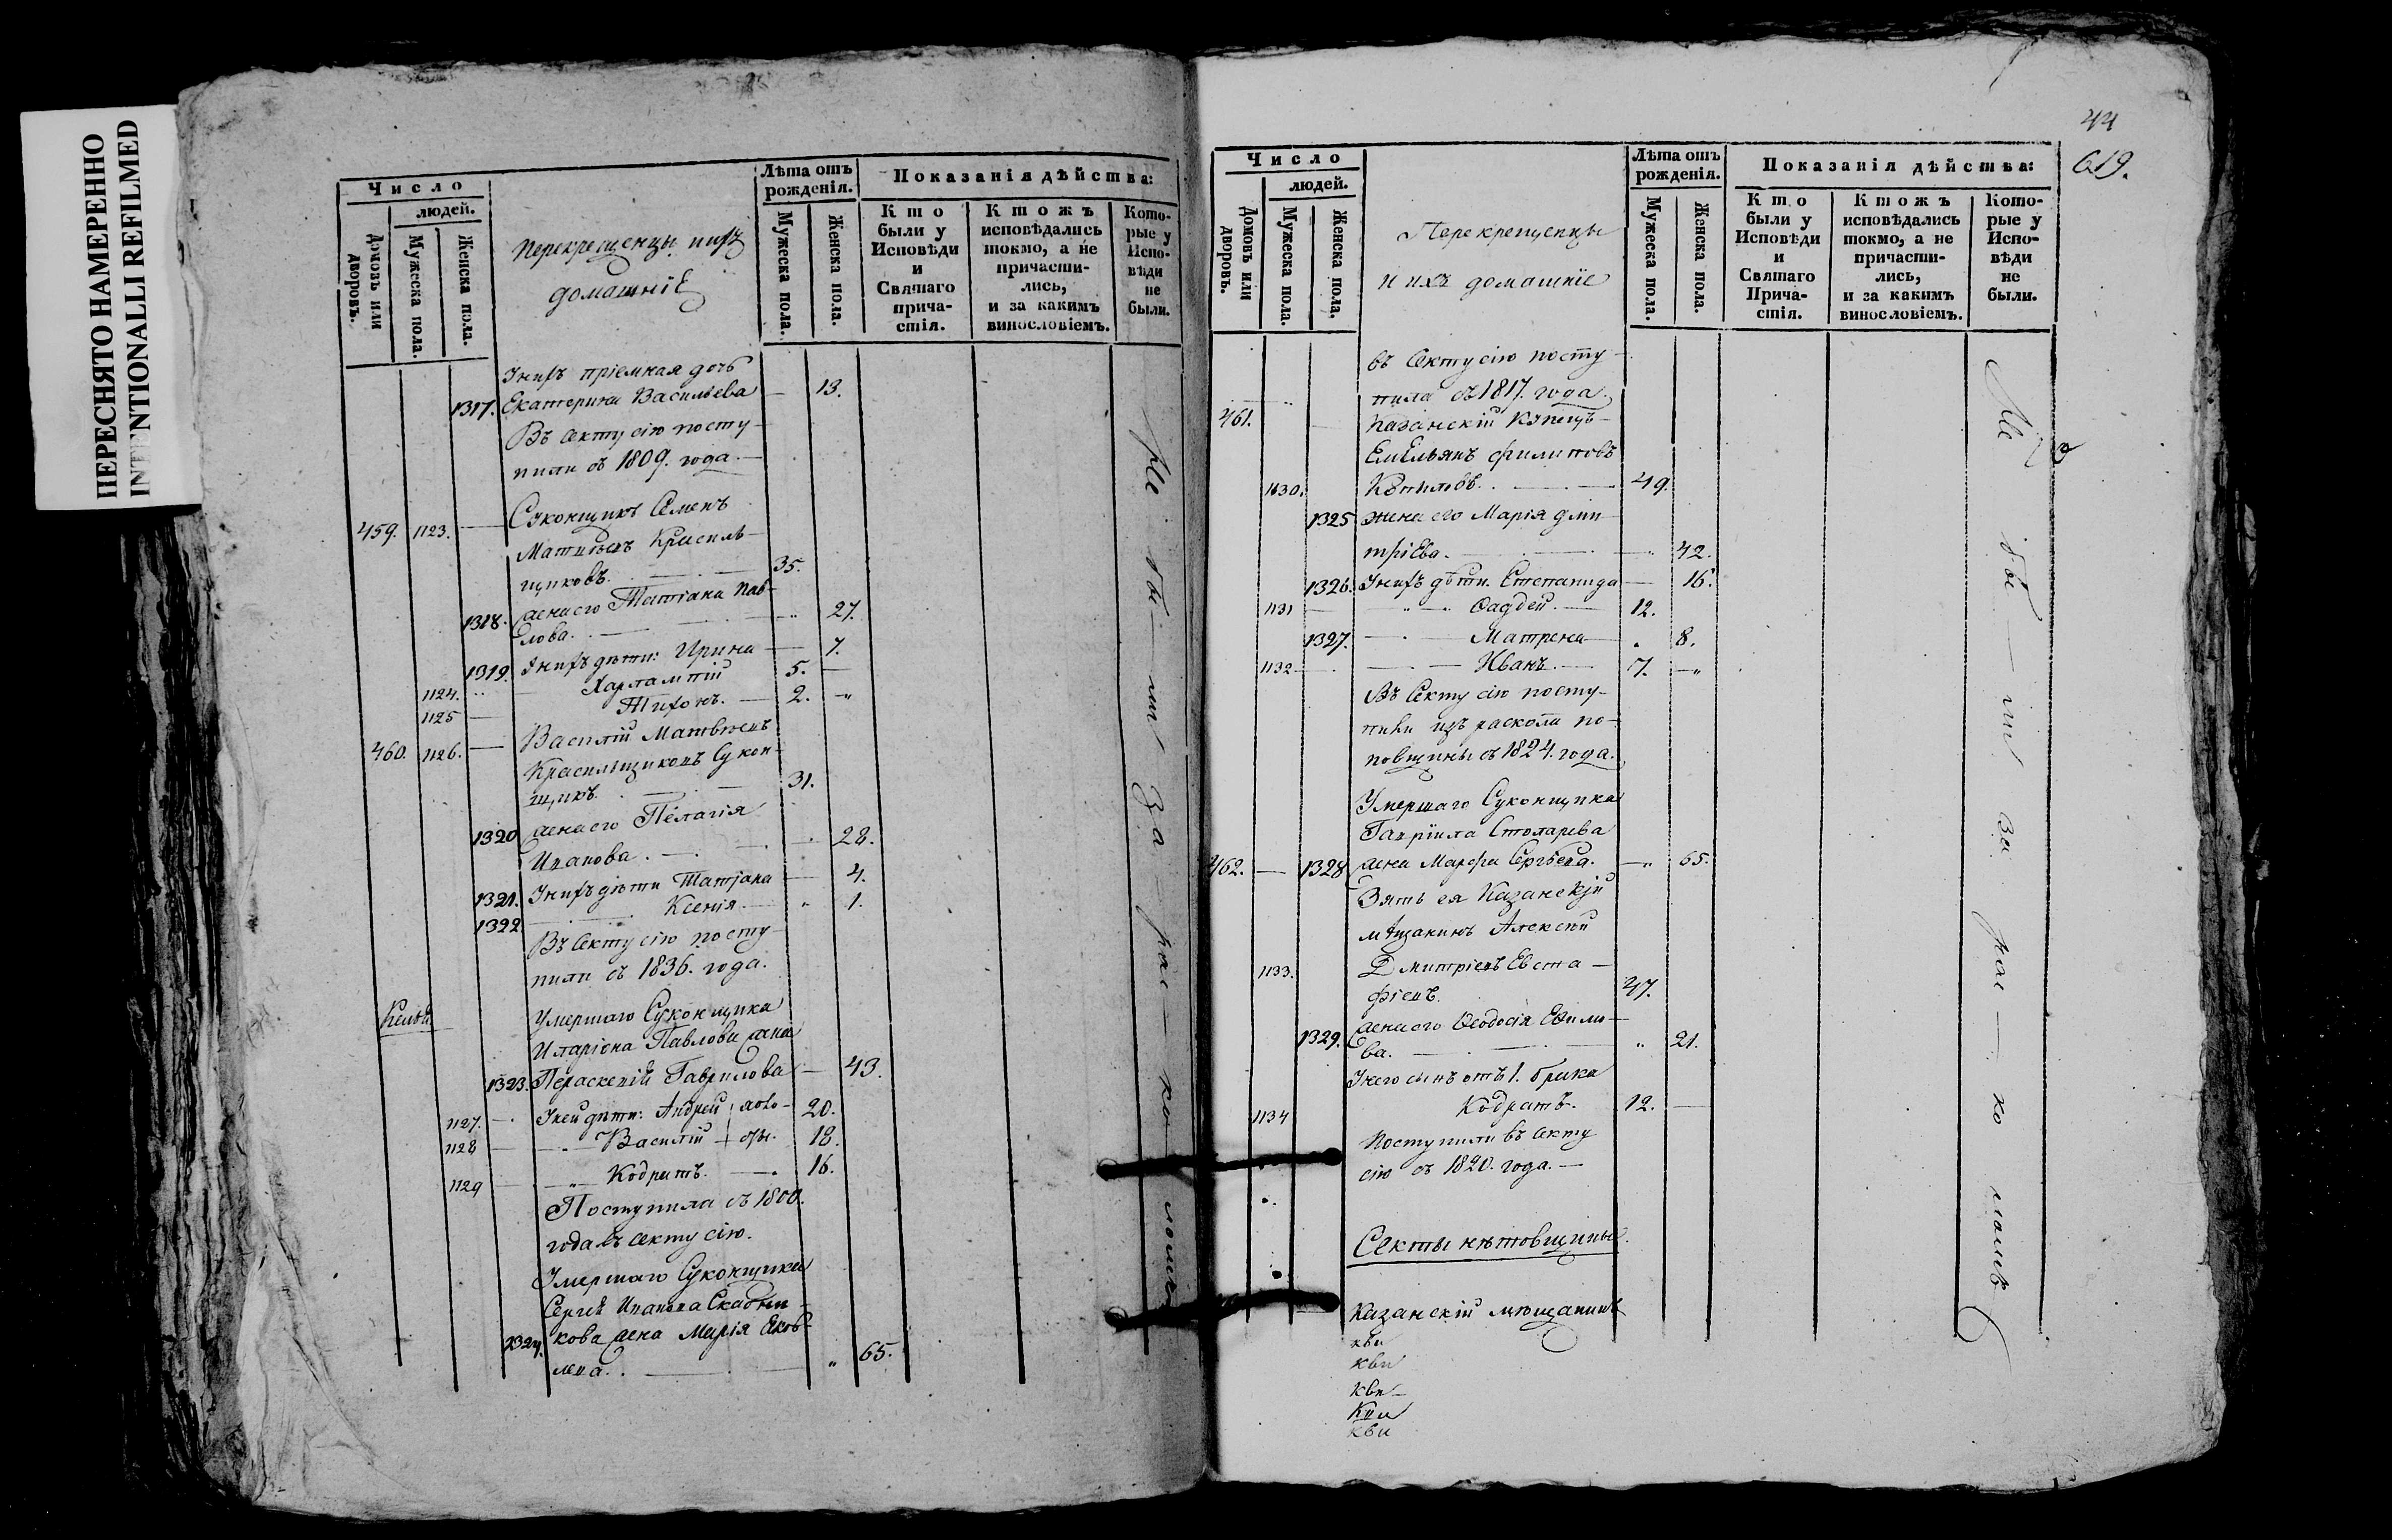 ПЕРЕСНЯТО НАМЕРЕННО
INTENTIONALLI REFILMED
Число
людей.
Домовъ или дворовъ.
Мужеска пола.
Женска пола.
Перекрещенцы ихъ
домашніе
Лѣта отъ рожденія.
Мужеска пола.
Женска пола.
Показанія дѣйства:
Кто были у Исповѣди и Святаго причастія.
Ктожъ исповѣдались токмо, а не причастились, и за какимъ винословіемъ.
Которые у Исповѣди не были.
У нихъ пріемная дочь
1317. Екатерина Васильева — 13.
Въ секту сію посту-
пили съ 1809. года.
459. 1123. — Суконщикъ Семенъ
Матвѣевъ Красиль-
щиковъ. 35.
1318. жена его Татіана Пав-
лова. 27.
1319. У нихъ дѣти: Ирина — 7.
1124. Харлампій 5. —
1125 — Тихонъ. — 2. "
460. 1126. — Василій Матвѣевъ
Красильщиковъ Сукон-
щикъ. 31.
1320 жена его Пелагія
Иванова. 28.
1321. У нихъ дѣти Татіана — 4.
1322 Ксенія. " 1.
Въ Секту сію посту-
пили съ 1836. года.
Умершаго Суконщика
Иларіона Павлова жена
1323. Параскевія Гаврилова — 43.
1127. У ней дѣти: Андрей 20.
1128 Василій 18.
1129 Кодратъ. 16.
Поступила съ 1800.
года въ секту сію.
Умершаго Суконщика
Сергѣя Иванова
1324. кова жена Марія Яков-
лева. " 65.
Не бы — ли за рас — ко — ломъ
44
619.
Число
людей.
Домовъ или дворовъ.
Мужеска пола.
Женска пола.
Перекрещенцы
и ихъ домашніе
Лѣта отъ рожденія.
Мужеска пола.
Женска пола.
Показанія дѣйства:
Кто были у Исповѣди и Святаго Причастія.
Ктожъ исповѣдались токмо, а не причастились, и за какимъ винословіемъ.
Которые у Исповѣди не были.
въ Секту сію посту-
пила съ 1817. года.
461. Казанскій Купецъ
Емельянъ Филиповъ
1130. 49.
1325 жена его Марія Дми-
тріева. 42.
1326. У нихъ дѣти. Степанида — 16.
1131 Фадѣй. — 12.
1327. Матрена — 8.
1132 Иванъ. — 7. — "
Въ Секту сію посту-
пили изъ раскола по-
повщины съ 1824. года.
Умершаго Суконщика
Гавріила Столярова
462. — 1328 жена Марѳа Сергѣева. — " 65.
Зять ея Казанскій
мѣщанинъ Алексѣй
1133. Дмитріевъ Евста-
фіевъ. 47.
1329. жена его Ѳеодосія
ва. " 21.
У него сынъ отъ 1. брака
1134 Кодратъ. 12. —
Поступили въ Секту
сію съ 1820. года.
Секты нѣтовщины.
Казанскій мѣщанинъ
кви
кви
кви
кви
кви
Не бы — ли за рас — ко — ломъ